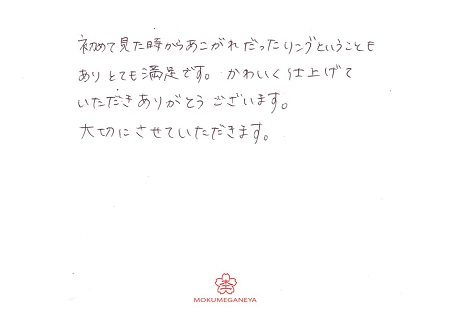 初めて見た時からあこがれだったリングということも
ありとても満足です。かわいく仕上げて
いただきありがとうございます。
大切にさせていただきます。
MOKUMEGANEYA